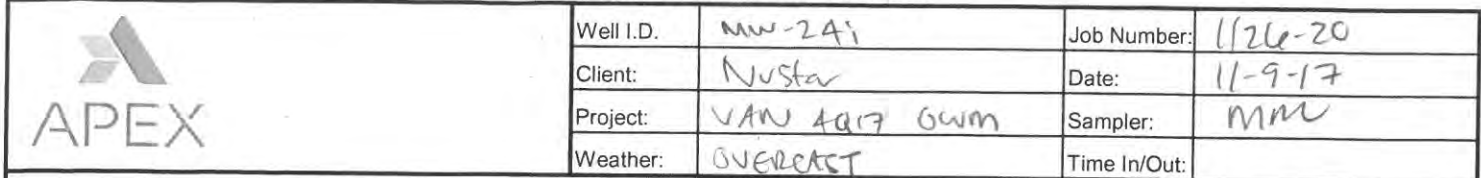 Well I.D. MW-24i Job Number: 1126-20
Client: NuStar Date: 11-9-17
APEX
Project: VAN 4Q17 GWM Sampler: MM
Weather: OVERCAST Time In/Out: